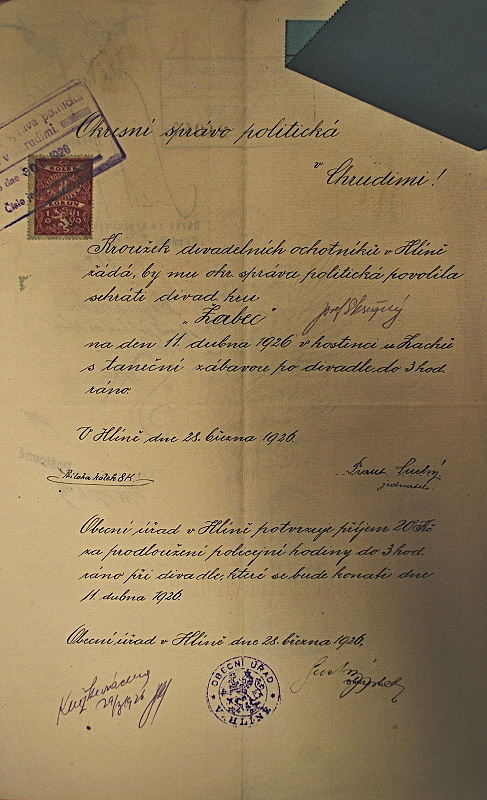 Okresní správo politická
v Chrudimi!
správa politická
v Chrudimi.
dne 1926
Číslo
KOLEK
8
KORUN
Kroužek divadelních ochotníků v Hlíně
žádá, by mu okr. správa politická povolila
sehráti divad. hru
„Žabec"
na den 11. dubna 1926 v hostinci u Zachů
s taneční zábavou po divadle, do 3 hod.
ráno.
V Hlíně dne 28. března 1926.
Příloha kolek 8 K
Frant. Suchý
jednatel.
Obecní úřad v Hlíně potvrzuje příjem 20 Kč
za prodloužení policejní hodiny do 3 hod.
ráno při divadle, které se bude konati dne
11. dubna 1926.
Obecní úřad v Hlíně dne 28. března 1926.
OBECNÍ ÚŘAD
V HLÍNĚ
Suchý
29/3 1926